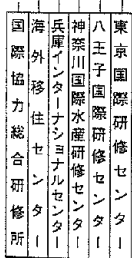 東京国際研修センター
八王子国際研修センター
神奈川国際水産研修センター
兵庫インターナショナルセンター
海外移住センター
国際協力総合研修所